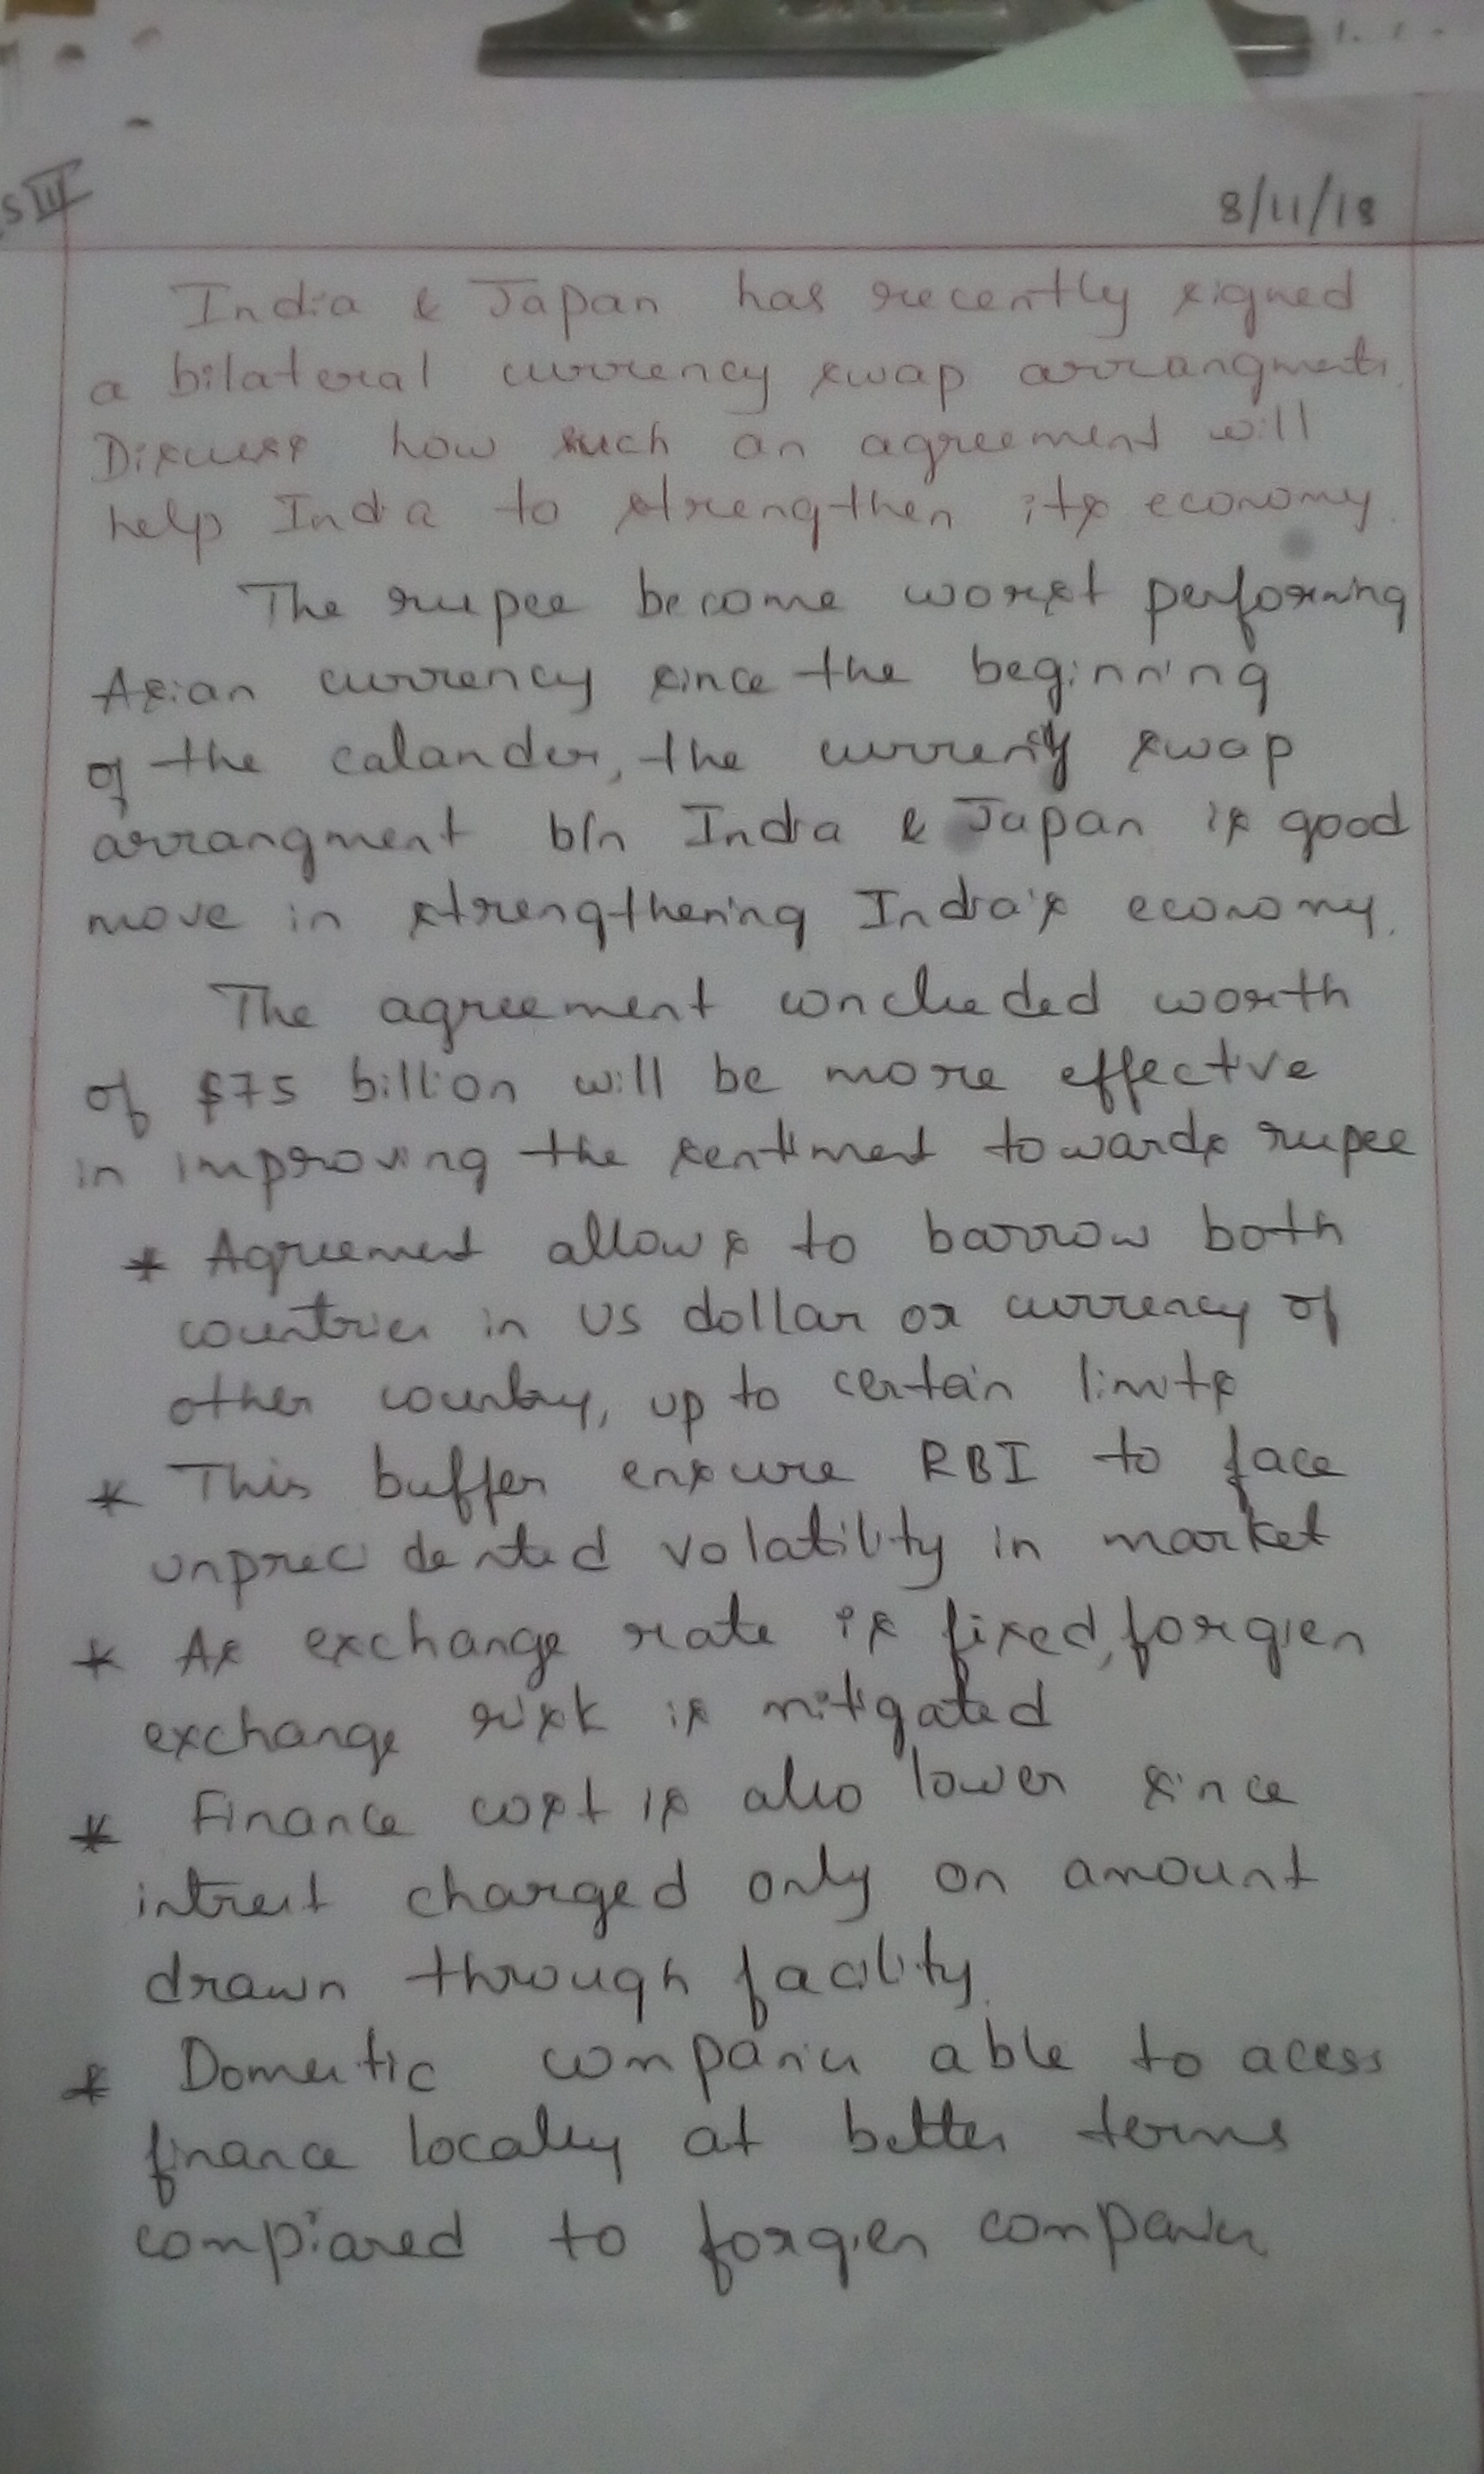 S III
8/11/18
India & Japan has recently signed
a bilateral currency swap arrangments.
Discuss how such an agreement will
help India to strengthen its economy.
The rupee become worst performing
Asian currency since the beginning
of the calander, the currency swap
arrangment b/n India & Japan is good
move in strengthening India's economy.
The agreement concluded worth
of $75 billion will be more effective
in improving the sentiment towards rupee
* Agreement allows to barrow both
countries in US dollar or currency of
other country, up to certain limits
* This buffer ensure RBI to face
unprecidented volatility in market
* As exchange rate is fixed, forgien
exchange risk is mitigated
* Finance cost is also lower since
intrest charged only on amount
drawn through facility.
* Domestic companies able to acess
finance locally at better terms
compiared to forgien companies